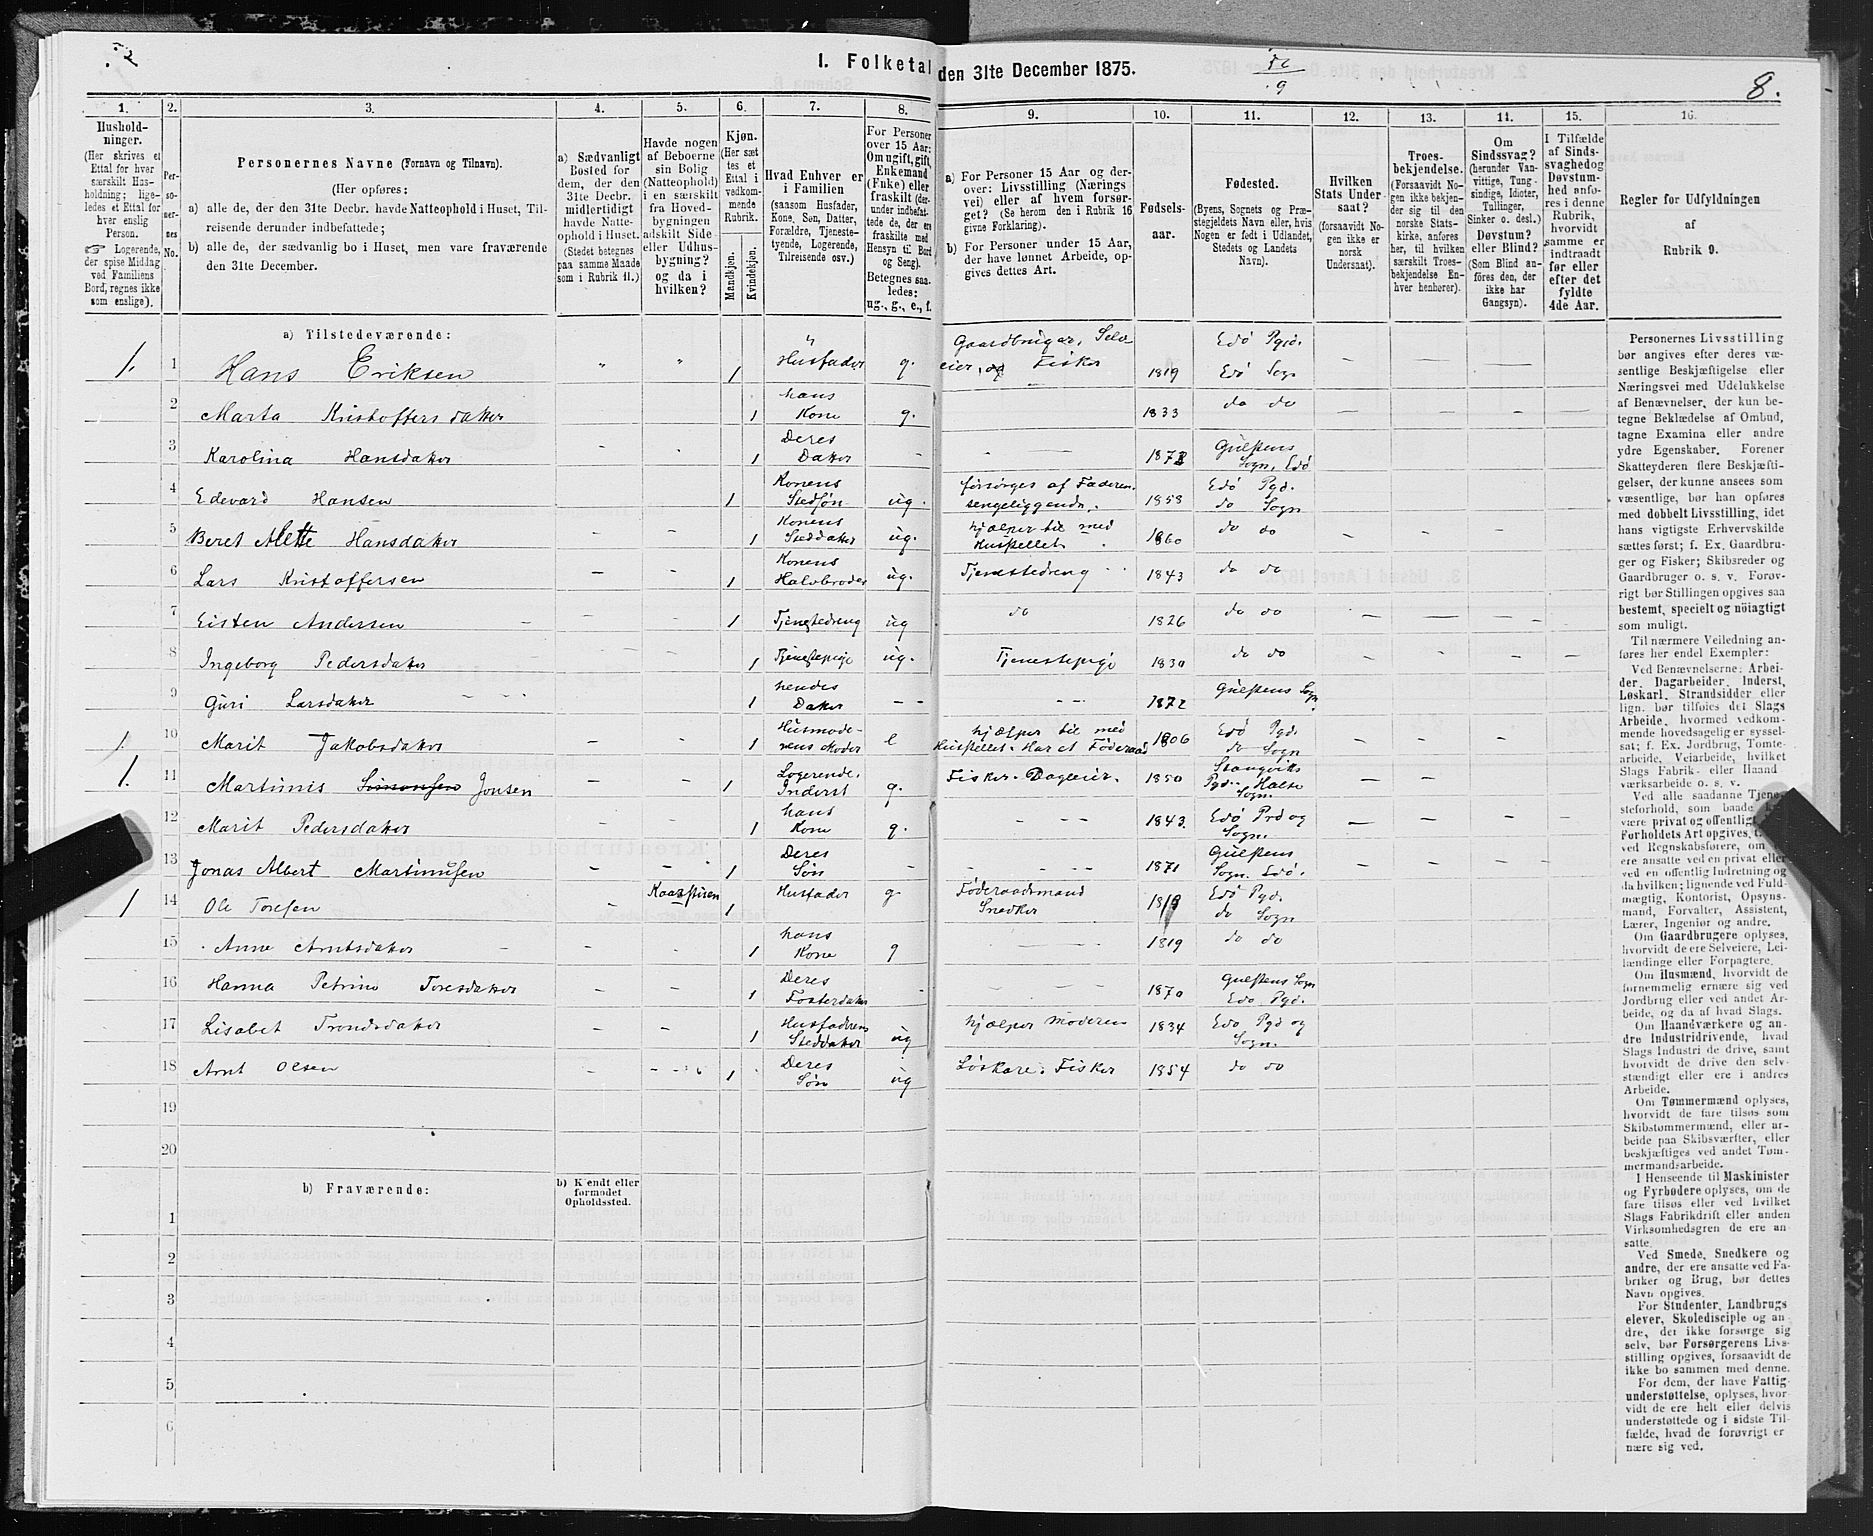 1. Folketal den 31te December 1875.
8.
1.
2.
3.
4.
5.
6.
7.
8.
9.
10.
11.
12.
13.
14.
15.
16.
Hushold-
ninger.
(Her skrives et
Ettal for hver
særskilt Hus-
holdning; lige-
ledes et Ettal for
hver enslig
Person.
☞ Logerende,
der spise Middag
ved Familiens
Bord, regnes ikke
som enslige).
Per-
so-
ner-
nes
No.
Personernes Navne (Fornavn og Tilnavn).
(Her opføres:
a) alle de, der den 31te Decbr. havde Natteophold i Huset, Til-
reisende derunder indbefattede;
b) alle de, der sædvanlig bo i Huset, men vare fraværende
den 31te December.
a) Sædvanligt
Bosted for
dem, der den
31te Decbr.
midlertidigt
havde Natte-
ophold i Huset.
(Stedet betegnes
paa samme Maade
som i Rubrik 11.)
Havde nogen
af Beboerne
sin Bolig
(Natteophold)
i en særskilt
fra Hoved-
bygningen
adskilt Side-
eller Udhus-
bygning?
og da i
hvilken?
Kjøn.
(Her sæt-
tes et
Ettal i
vedkom-
mende
Rubrik.
Mandkjøn.
Kvindekjøn.
Hvad Enhver er
i Familien
(saasom Husfader,
Kone, Søn, Datter,
Forældre, Tjeneste-
tyende, Logerende,
Tilreisende osv.)
For Personer
over 15 Aar:
Om ugift, gift,
Enkemand
(Enke) eller
fraskilt (der-
under indbefat-
tede de, der ere
fraskilte med
Hensyn til Bord
og Seng).
Betegnes saa-
ledes:
ug., g., e., f.
a) For Personer 15 Aar og der-
over: Livsstilling (Nærings-
vei) eller af hvem forsør-
get? (Se herom den i Rubrik 16
givne Forklaring).
b) For Personer under 15 Aar,
der have lønnet Arbeide, op-
gives dettes Art.
Fødsels-
aar.
Fødested.
(Byens, Sognets og Præ-
stegjeldets Navn eller, hvis
Nogen er født i Udlandet,
Stedets og Landets
Navn).
Hvilken
Stats Under-
saat?
(forsaavidt No-
gen ikke er
norsk
Undersaat).
Troes-
bekjendelse.
(Forsaavidt No-
gen ikke bekjen-
der sig til den
norske Stats-
kirke, anføres
her, til hvilken
særskilt Troes-
bekjendelse En-
hver henhører).
Om
Sindssvag?
(herunder Van-
vittige, Tung-
sindige, Idioter,
Tullinger,
Sinker o. desl.)
Døvstum?
eller Blind?
(Som Blind an-
føres den, der
ikke har
Gangsyn).
I Tilfælde
af Sinds-
svaghed og
Døvstum-
hed anfø-
res i denne
Rubrik,
hvorvidt
samme er
indtraadt
før eller
efter det
fyldte
4de Aar.
Regler for Udfyldningen
af
Rubrik 9.
a) Tilstedeværende:
1. 1 Hans Eriksen " " 1 Husfader g. Gaardbruger, Selv
eier, og Fisker 1819 Edø Pgjd.
Edø Sogn — —
2 Marta Kristoffersdatter 1 hans
Kone g. 1833 do do
3 Karolina Hansdatter 1 Deres
Datter 187 Gulstens
Sogn, Edø
4 Edevard Hansen 1 Konens
Stedsøn ug. forsørges af Faderen.
sengeliggende. 1858 Edø Pgd.
do Sogn
5 Beret Mette Hansdatter 1 Konens
Steddatter ug. hjælper til med
Husstellet 1860 do do
6 Lars Kristoffersen 1 Konens
Halvbroder ug. Tjenestedreng 1843 do do
7 Eisten Andersen 1 Tjenestedreng ug do 1826 do do
8 Ingeborg Pedersdatter 1 Tjenestepige ug. Tjenestepige 1830 do do
9 Guri Larsdatter 1 hendes
Datter 1872 Gulstens Sogn
1. 10 Marit Jakobsdatter 1 Husmode-
rens Moder e hjælper til med
Husstellet. Har et Føderaad 1806 Edø Pgd.
do Sogn
1. 11 Martinus Simonsen Jonsen 1 Logerende.
Inderst g. Fisker. Dagleier. 1850 Stangviks
Pgd. Halse
Sogn.
12 Marit Pedersdatter 1 hans
Kone g. 1843. Edø Prd og
Sogn.
13 Jonas Albert Martinussen 1 Deres
Søn 1871 Gulstens
Sogn. Edø.
1 14 Ole Toresen 1 Husfader g Føderaadsmand
Snedker Edø Pgd.
do Sogn
15 Anne Arntsdatter 1 hans
Kone g 1819 do do
16 Hanna Petrine Toresdatter 1 Deres
Fosterdatter 1870 Gulstens Sogn
Edø Pgd.
17 Lisabet Trondsdatter 1 Husfaderens
Steddatter ug hjælper Moderen 1834 Edø Pgd og
Sogn.
18 Arnt Olsen 1 Deres
Søn ug Løskare. Fisker 1854 do do
19
20
b) Fraværende:
b) Kjendt eller
formodet
Opholdssted.
1
2
3
4
5
6
Personernes Livsstilling
bør angives efter deres væ-
sentlige Beskjæftigelse eller
Næringsvei med Udelukkelse
af Benævnelser, der kun be-
tegne Beklædelse af Ombud,
tagne Examina eller andre
ydre Egenskaber. Forener
Skatteyderen flere Beskjæfti-
gelser, der kunne ansees som
væsentlige, bør han opføres
med dobbelt Livsstilling, idet
hans vigtigste Erhvervskilde
sættes først; f. Ex. Gaardbru-
ger og Fisker; Skibsreder og
Gaardbruger o. s. v. Forøv-
rigt bør Stillingen opgives saa
bestemt, specielt og nöiagtigt
som muligt.
Til nærmere Veiledning an-
føres her endel Exempler:
Ved Benævnelserne: Arbei-
der, Dagarbeider, Inderst,
Løskarl, Strandsidder eller
lign. bør tilføies det Slags
Arbeide, hvormed vedkom-
mende hovedsagelig er syssel-
sat; f. Ex. Jordbrug, Tomte-
arbeide, Veiarbeide, hvilket
Slags Fabrik- eller Haand-
værksarbeide o. s. v.
Ved alle saadanne Tjene-
steforhold, som baade kan
være privat og offentlig,
Forholdets Art opgives,
ved Regnskabsførere, om
ere ansatte ved en privat eller
ved en offentlig Indretning og
da hvilken; lignende ved Fuld-
mægtig, Kontorist, Opsyns-
mand, Forvalter, Assistent,
Lærer, Ingeniør og andre.
Om Gaardbrugere oplyses,
hvorvidt de ere Selveiere, Lei-
lændinge eller Forpagtere.
Om Husmænd, hvorvidt de
fornemmelig ernære sig ved
Jordbrug eller ved andet Ar-
beide, og da af hvad Slags.
Om Haandværkere og an-
dre Industridrivende, hvad
Slags Industri de drive, samt
hvorvidt de drive den selv-
stændigt eller ere i andres
Arbeide.
Om Tømmermænd oplyses,
hvorvidt de fare tilsøs som
Skibstømmermænd, eller ar-
beide paa Skibsværfter, eller
beskjæftiges ved andet Tøm-
mermandsarbeide.
I Henseende til Maskinister
og Fyrbødere oplyses, om de
fare tilsøs eller ved hvilket
Slags Fabrikdrift eller anden
Virksomhedsgren de ere an-
satte.
Ved Smede, Snedkere og
andre, der ere ansatte ved Fa-
briker og Brug, bør dettes
Navn opgives.
For Studenter, Landbrugs-
elever, Skoledisciple og an-
dre, der ikke forsørge sig
selv, bør Forsørgerens Livs-
stilling opgives, forsaavidt de
ikke bo sammen med denne.
For dem, der have Fattig-
understøttelse, oplyses, hvor-
vidt de ere helt eller delvis
understøttede og i sidste Til-
fælde, hvad de forøvrigt er-
nære sig ved.